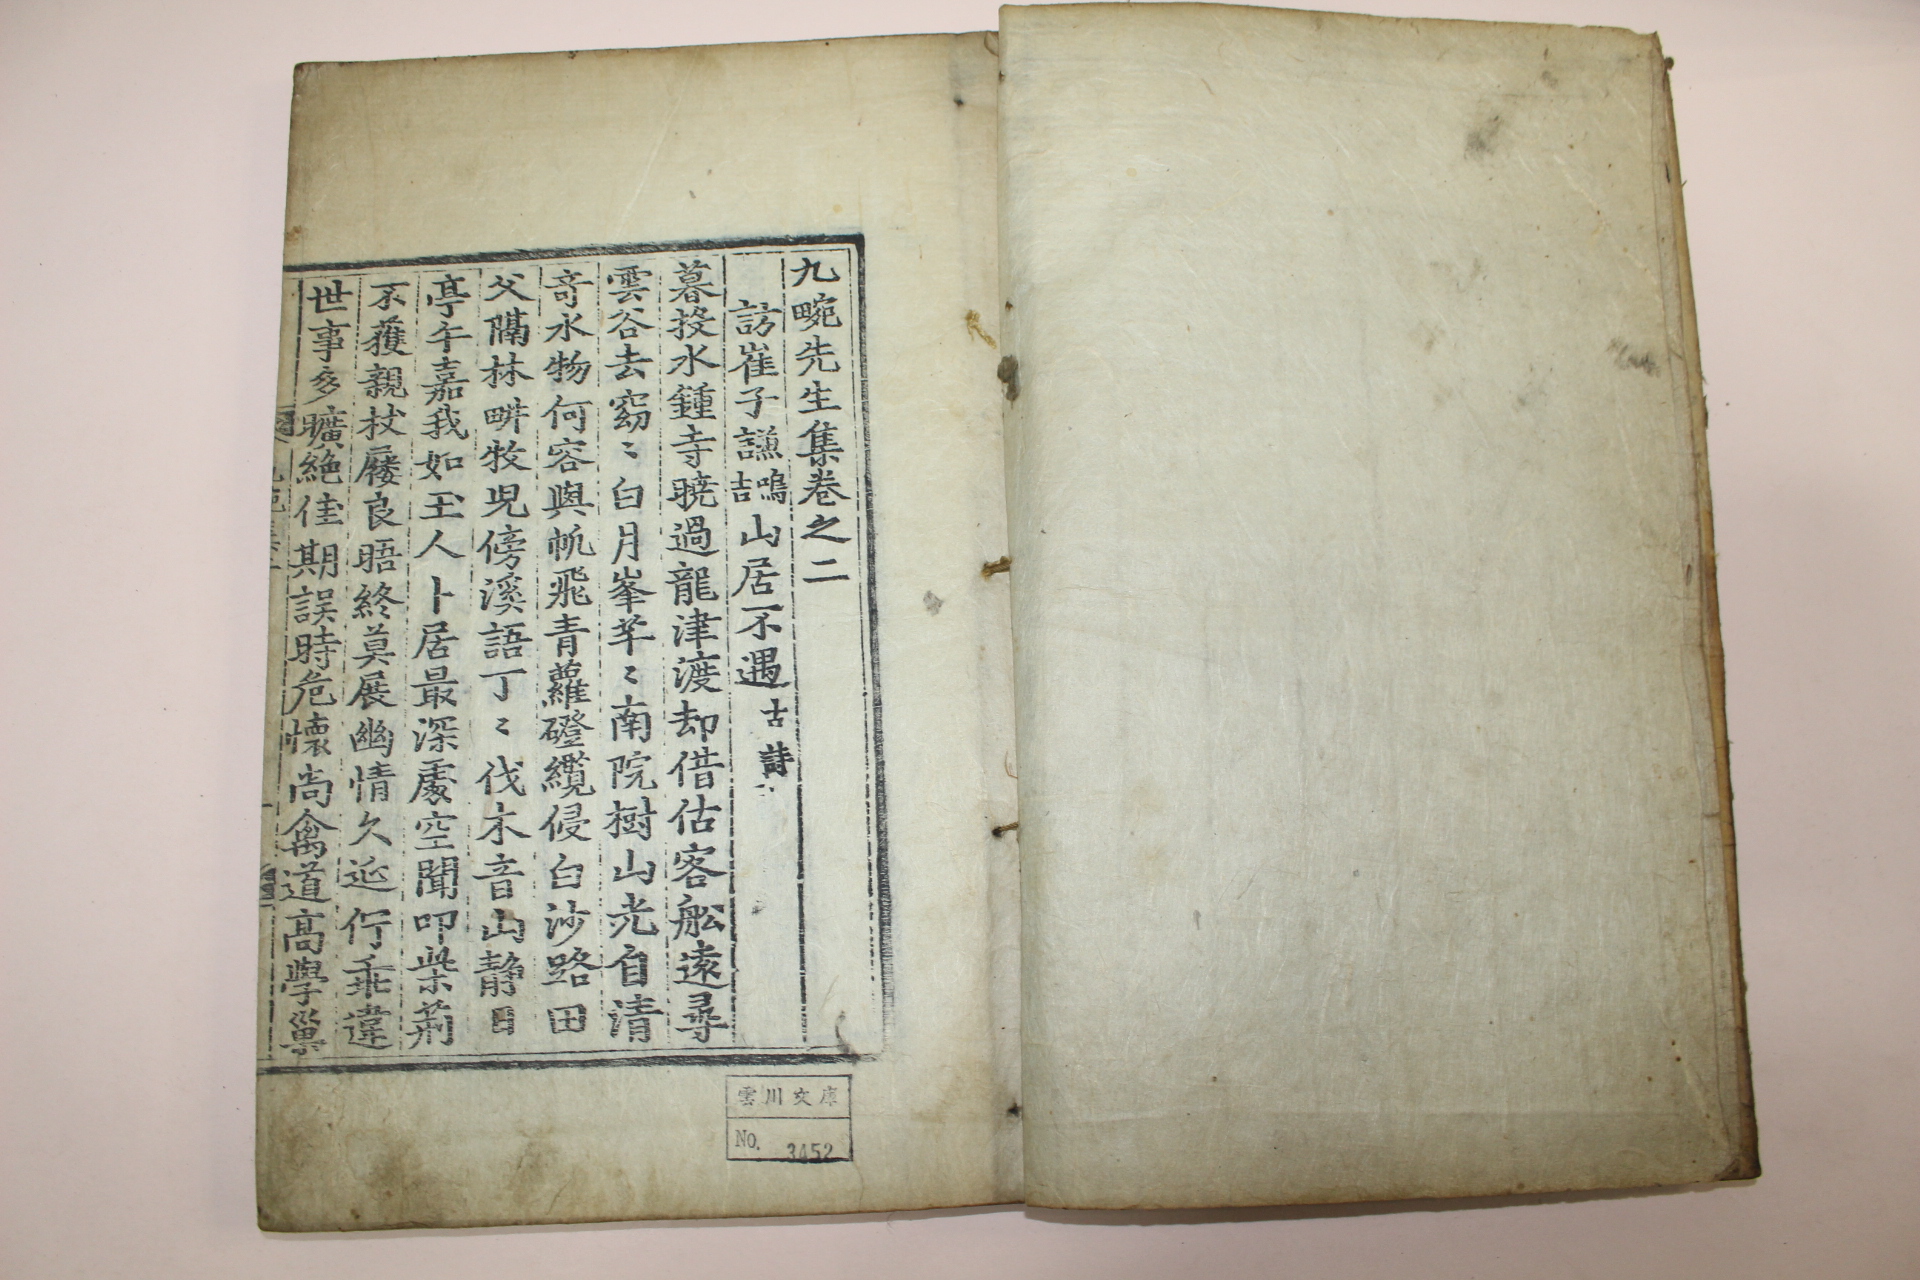 九畹先生集卷之二
訪崔子謙鳴吉山居不遇古詩
暮投水鍾寺曉過龍津渡却借估客舩遠尋
雲谷去窈〻白月峯芊〻南院樹山光自清
奇水物何容與帆飛青蘿磴纜侵白沙路田
父隔林畊牧児傍溪語丁〻伐木音山靜日
亭午嘉我如玉人卜居最深處空聞叩柴荆
不獲親杖屨良晤終莫展幽情久延佇乖違
世事多曠絶佳期誤時危懷尚禽道高學巢
雲川文庫
No. 3452